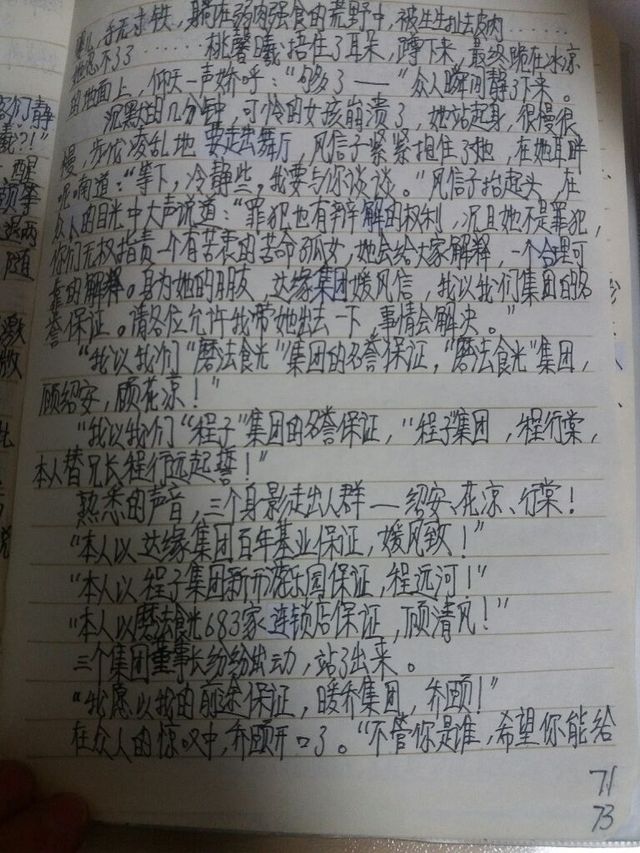 手无寸铁，躺在弱肉强食的荒野中，被生生扯去皮肉……
她忍不了……桃馨曦捂住了耳朵，蹲下来，最终跪在冰凉
的地面上，仰天一声娇呼：“够了——”众人瞬间静了下来。
沉默的几分钟，可怜的女孩崩溃了，她站起身，很慢很
慢，步伐凌乱地要走出舞厅，风信子紧紧担住了她，在她耳畔
呢喃道：“等下，冷静些，我要与你谈谈。”风信子抬起头，在
众人的目光中大声说道：“罪犯也有辩解的权利，况且她不是罪犯，
你们无权指责一个有苦衷的苦命孤女，她会给大家解释，一个合理可
靠的解释。身为她的朋友，达缘集团媛风信，我以我们集团的名
誉保证。请各位允许我带她出去一下，事情会解决。”
“我以我们“磨法食光”集团的名誉保证，“磨法食光”集团，
顾绍安，顾花凉！”
“我以我们“程子”集团的名誉保证，“程子”集团，程行棠，
本人替兄长程行远起誓！”
熟悉的声音，三个身影走出人群—绍安、花凉、行棠！
“本人以达缘集团百年基业保证，媛风致！”
“本人以程子集团新开游乐园保证，程远河！”
“本人以磨法食光683家连锁店保证，顾清风！”
三个集团董事长纷纷出动，站了出来。
“我愿以我的前途保证，暖乔集团，乔颐！”
在众人的惊叹中，乔颐开口了。“不管你是谁，希望你能给
71
73